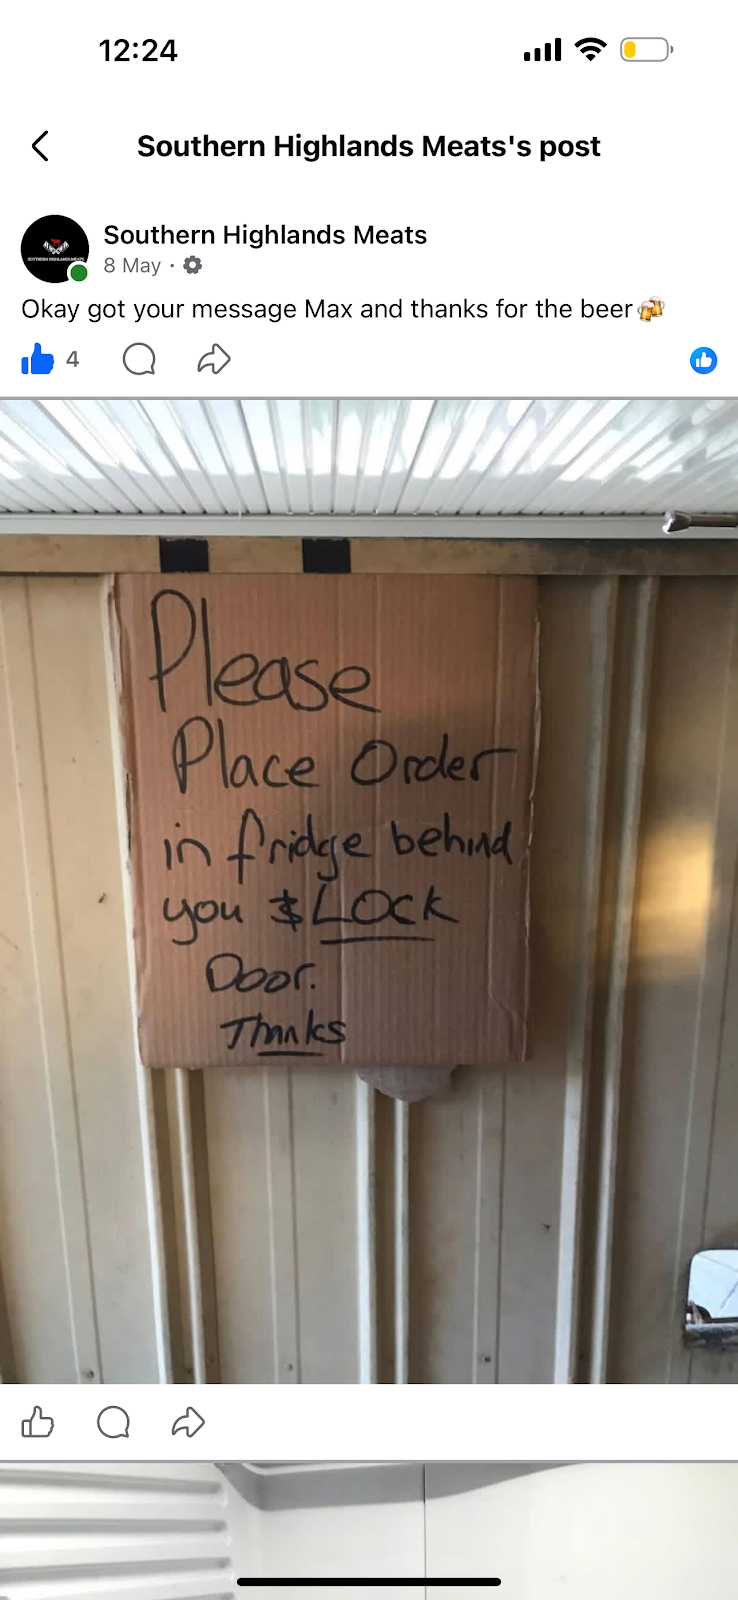 12:24
Southern Highlands Meats's post
Southern Highlands Meats
8 May ·
Okay got your message Max and thanks for the beer🍻
4
Please
Place Order
in fridge behind
you & LOCK
Door.
Thanks